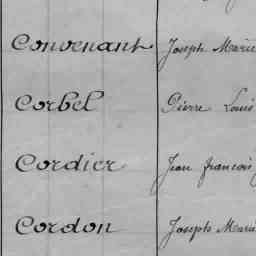 Convenant Joseph Marie
Corbel Pierre Louis
Cordier Jean francois
Cordon Joseph Marie